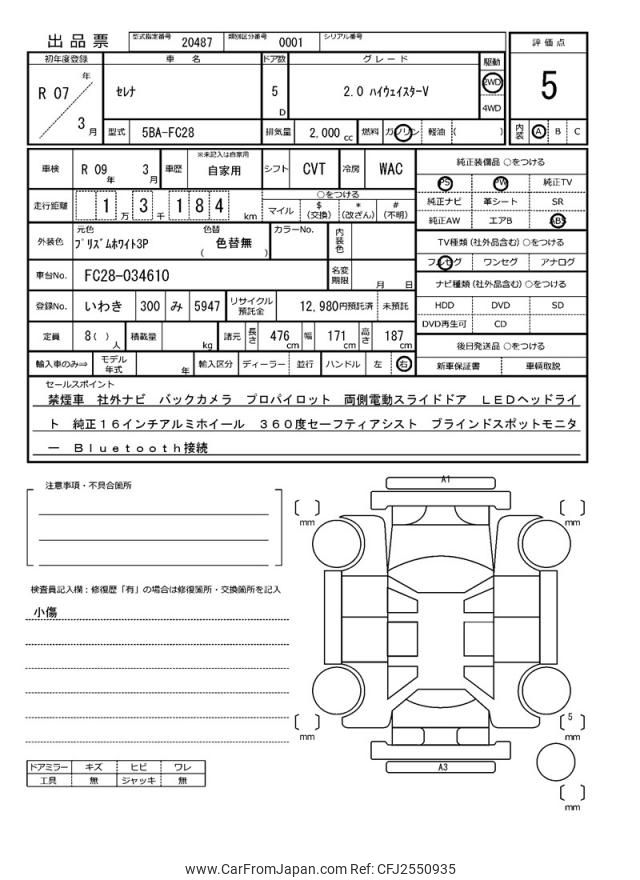 出品票 型式指定番号 20487 類別区分番号 0001 シリアル番号
評価点
5
内装 A B C
初年度登録 車名 ドア数 グレード 駆動
R 07 年 3 月 セレナ 5 D 2.0 ハイウェイスターV 2WD 4WD
型式 5BA-FC28 排気量 2,000 cc 燃料 ガソリン 軽油 ( )
車検 R 09 年 3 月 車歴 ※未記入は自家用 自家用 シフト CVT 冷房 WAC
走行距離 1 万 3 千 1 8 4 km ○をつける マイル $ (交換) * (改ざん) # (不明)
外装色 元色 プリズムホワイト3P 色替 ( 色替無 ) カラーNo. 内装色
車台No. FC28-034610 名変期限 月 日
登録No. いわき 300 み 5947 リサイクル預託金 12,980円預託済 未預託
定員 8( ) 人 積載量 kg 諸元 長さ 476 cm 幅 171 cm 高さ 187 cm
輸入車のみ⇒ モデル年式 年 輸入区分 ディーラー 並行 ハンドル 左 右
純正装備品 ○をつける
PS PW 純正TV
純正ナビ 革シート SR
純正AW エアB ABS
TV種類 (社外品含む) ○をつける
フルセグ ワンセグ アナログ
ナビ種類 (社外品含む) ○をつける
HDD DVD SD
DVD再生可 CD
後日発送品 ○をつける
新車保証書 車輌取説
セールスポイント
禁煙車 社外ナビ バックカメラ プロパイロット 両側電動スライドドア LEDヘッドライ
ト 純正16インチアルミホイール 360度セーフティアシスト ブラインドスポットモニタ
ー Bluetooth接続
注意事項・不具合箇所
検査員記入欄：修復歴「有」の場合は修復箇所・交換箇所を記入
小傷
ドアミラー キズ ヒビ ワレ
工具 無 ジャッキ 無
A1
mm
mm
mm
5
mm
A3
mm
www.CarFromJapan.com Ref: CFJ2550935